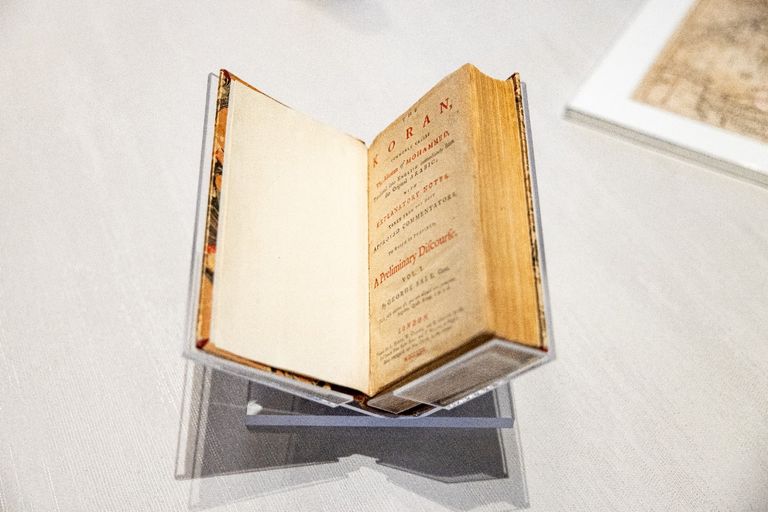 THE
KORAN,
COMMONLY CALLED
The Alcoran of MOHAMMED,
Tranſlated into ENGLISH immediately from
the Original ARABIC;
WITH
EXPLANATORY NOTES,
TAKEN FROM THE MOST
APPROVED COMMENTATORS.
To which is prefixed
A Preliminary Diſcourſe.
VOL. I.
By GEORGE SALE, Gent.
LONDON